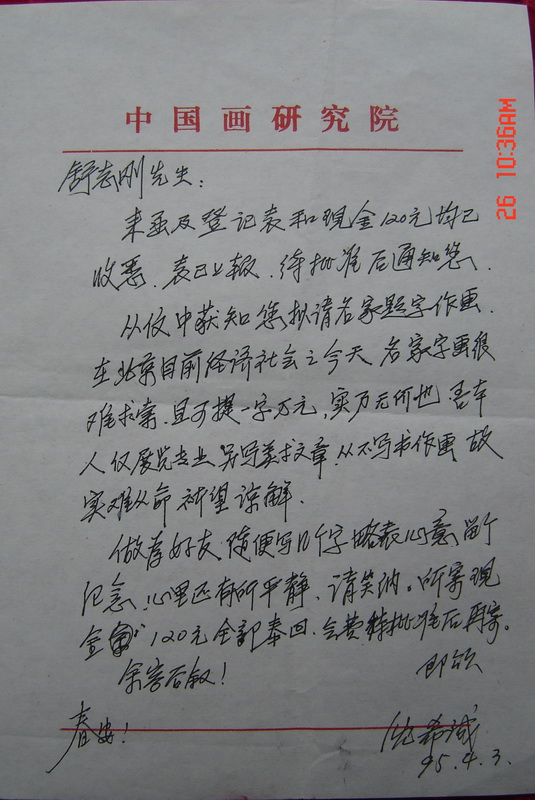 中国画研究院
舒志刚先生：
来函及登记表和现金120元均已
收悉、表已上报、待批准后通知您、
从仪中获知您拟请名家题字作画、
在北京目前经济社会之今天、名家字画很
难求索、且可提一字万元、实乃无价也、吾本
人仅展览专业、另写美术文章、从不写书作画、故
实难从命、祈望谅解、
做为好友、随便写几个字、略表心意、留个
纪念、心里还有所平静、请笑纳。所寄现
金 120元全部奉回、会费待批准后再寄。
余容后叙！ 即颂
春安！
希诚
95.4.3.
26 10:36AM